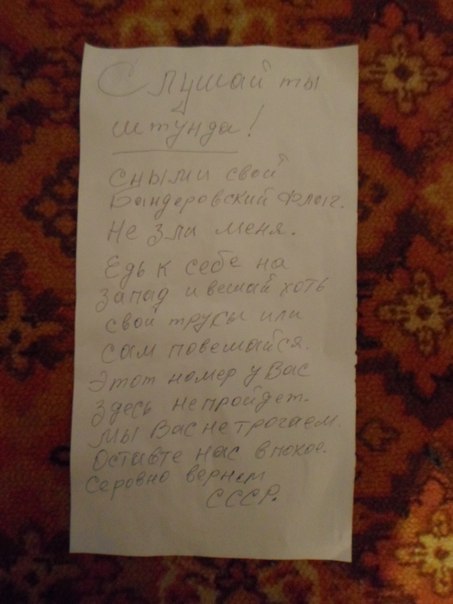 Слушай ты
штунда!
Сными свой
Бандеровский Флаг.
Не зли меня.
Едь к себе на
запад и вешай хоть
свои трусы или
сам повешайся.
Этот номер у Вас
здесь непройдет.
Мы Вас не трогаем.
Оставте нас в покое.
Серовно вернем
СССР.